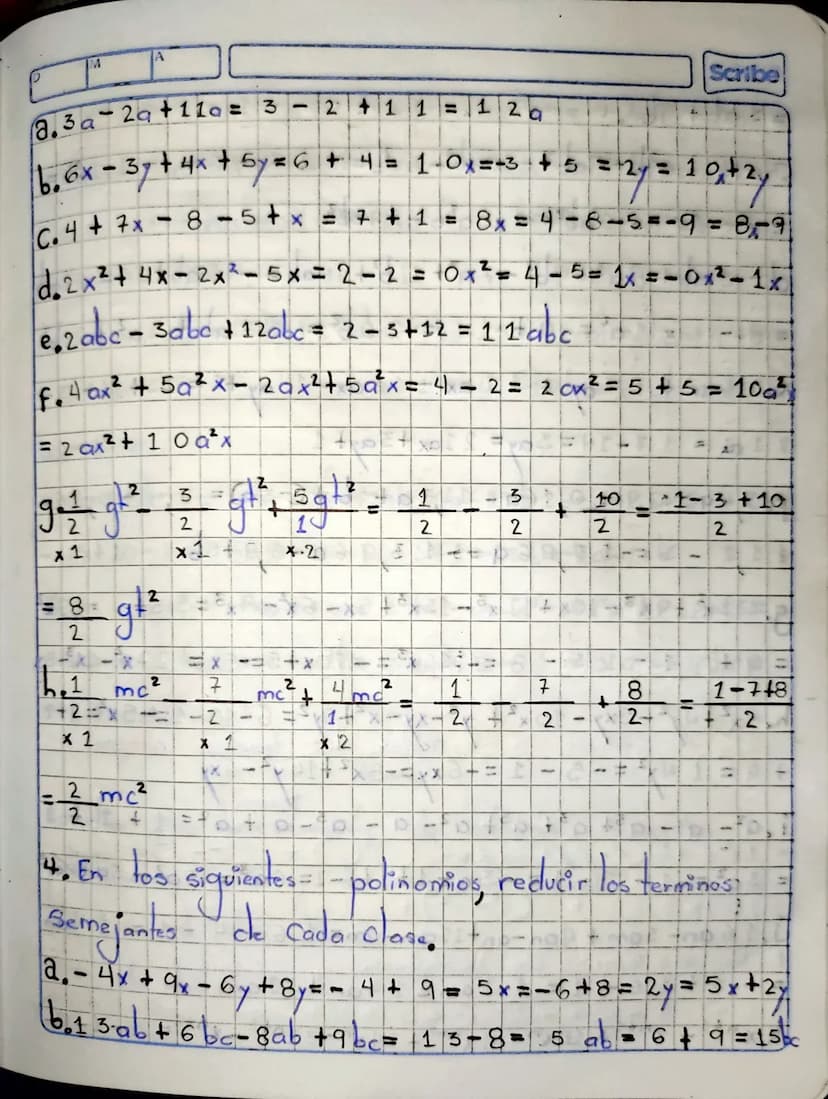 D M A Scribe
a. 3a - 2a + 11a = 3 - 2 + 11 = 12a
b. 6x - 3y + 4x + 5y = 6 + 4 = 10x = -3 + 5 = 2y = 10x + 2y
c. 4 + 7x - 8 - 5 + x = 7 + 1 = 8x = 4 - 8 - 5 = -9 = 8x - 9
d. 2x² + 4x - 2x² - 5x = 2 - 2 = 0x² = 4 - 5 = 1x = -0x² - 1x
e. 2abc - 3abc + 12abc = 2 - 3 + 12 = 11abc
f. 4ax² + 5a²x - 2ax² + 5a²x = 4 - 2 = 2ax² = 5 + 5 = 10a²x
= 2ax² + 10a²x
g. 1/2 gt² - 3/2 gt² + 5gt²/1 = 1/2 - 3/2 + 10/2 = 1-3+10/2
x1 x1 x2
= 8/2 gt²
h. 1/2 mc² - 7/2 mc² + 4mc²/1 = 1/2 - 7/2 + 8/2 = 1-7+8/2
x1 x1 x2
= 2/2 mc²
4. En los siguientes polinomios, reducir los terminos
Semejantes de Cada Clase.
a. -4x + 9x - 6y + 8y = -4 + 9 = 5x = -6 + 8 = 2y = 5x + 2y
b. 13ab + 6bc - 8ab + 9bc = 13 - 8 = 5 ab = 6 + 9 = 15bc